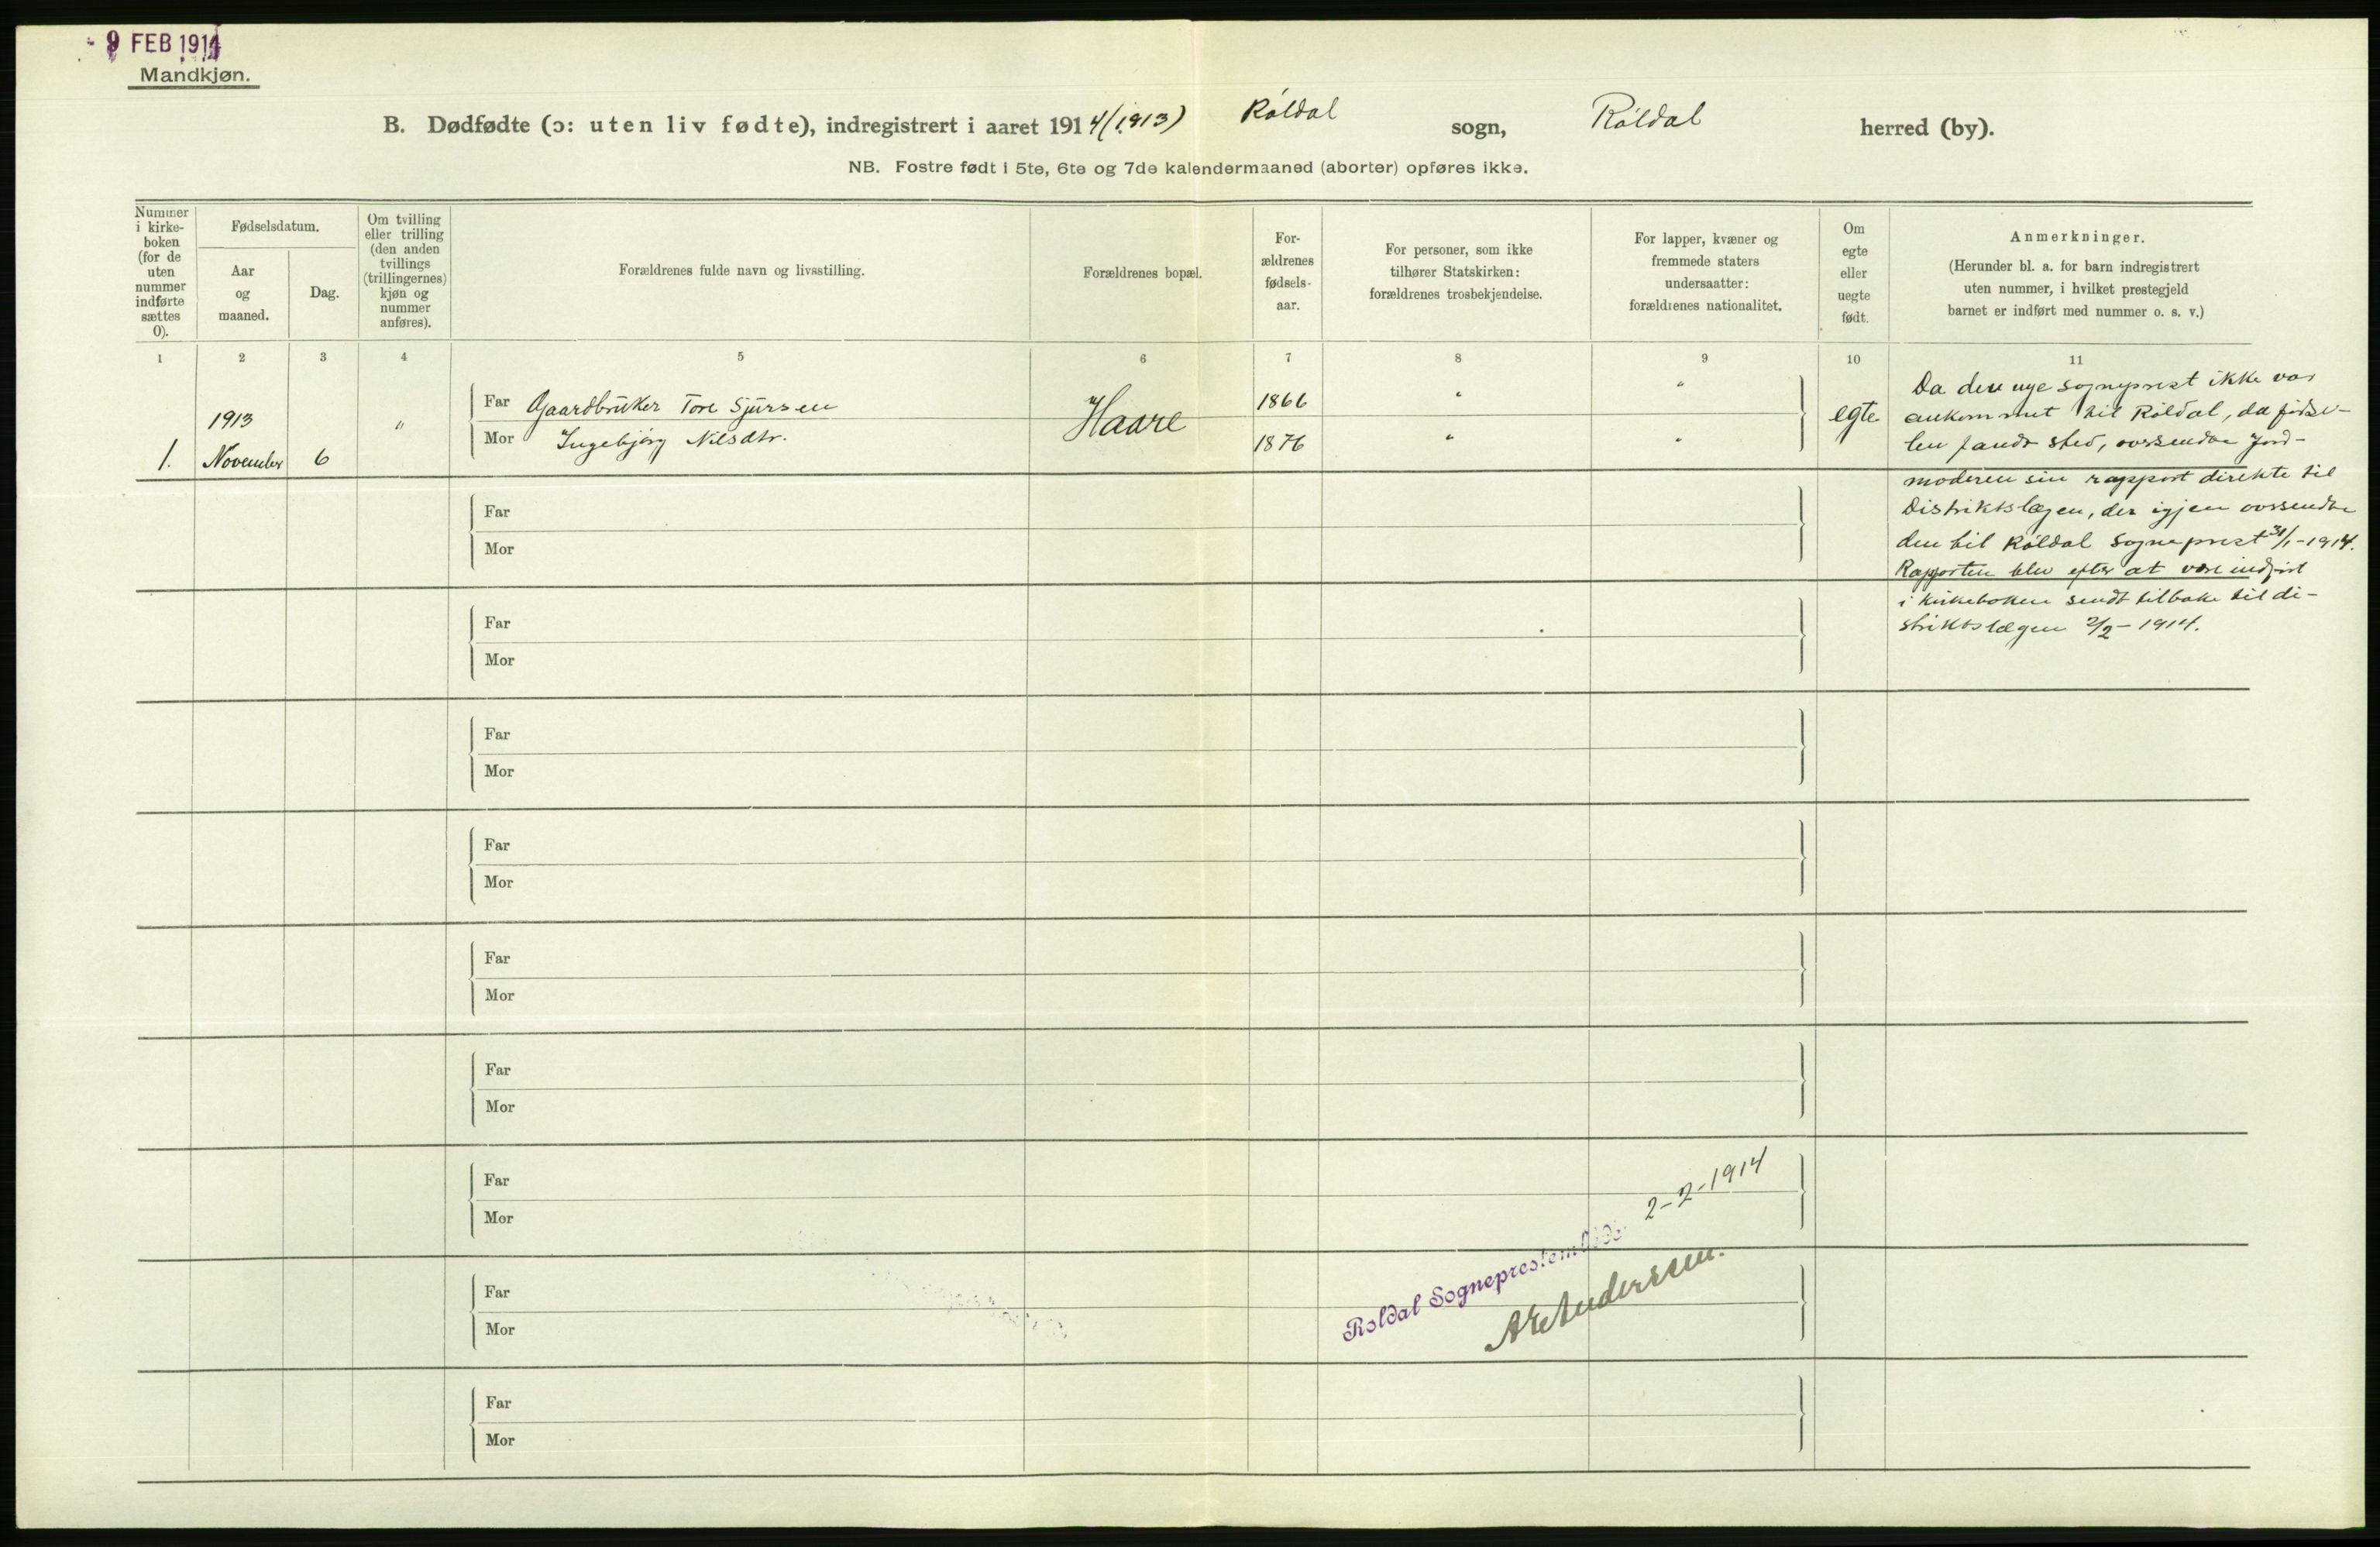 - 9 FEB 1914
Mandkjøn.
B. Dødfødte (ɔ: uten liv fødte), indregistrert i aaret 1914/(1913) Röldal sogn, Röldal herred (by).
NB. Fostre født i 5te, 6te og 7de kalendermaaned (aborter) opføres ikke.
Nummer
i kirke-
boken
(for de
uten
nummer
indførte
sættes
0).
Fødselsdatum.
Aar
og
maaned.
Dag.
Om tvilling
eller trilling
(den anden
tvillings
(trillingernes)
kjøn og
nummer
anføres).
Forældrenes fulde navn og livsstilling.
Forældrenes bopæl.
For-
ældrenes
fødsels-
aar.
For personer, som ikke
tilhører Statskirken:
forældrenes trosbekjendelse.
For lapper, kvæner og
fremmede staters
undersaatter:
forældrenes nationalitet.
Om
egte
eller
uegte
født.
Anmerkninger.
(Herunder bl. a. for barn indregistrert
uten nummer, i hvilket prestegjeld
barnet er indført med nummer o. s. v.)
1 2 3 4 5 6 7 8 9 10 11
1.
1913
November 6
"
Far Gaardbruker Tore Sjursen
Mor Ingebjörg Nilsdtr.
Haare
1866 " "
1876 " "
egte
Da den nye sogneprest ikke var
ankommet til Röldal, da födse-
len fandt sted, oversendte jord-
moderen sin rapport direkte til
Distriktslægen, der igjen oversendte
den til Röldal Sogneprest 31/1-1914.
Rapporten blev efter at være indfört
i kirkeboken sendt tilbake til di-
striktslægen 2/2-1914.
Far
Mor
Far
Mor
Far
Mor
Far
Mor
Far
Mor
Far
Mor
Far
Mor
Far
Mor
Far
Mor
Roldal Sogneprestembede 2-2-1914
Andersen.